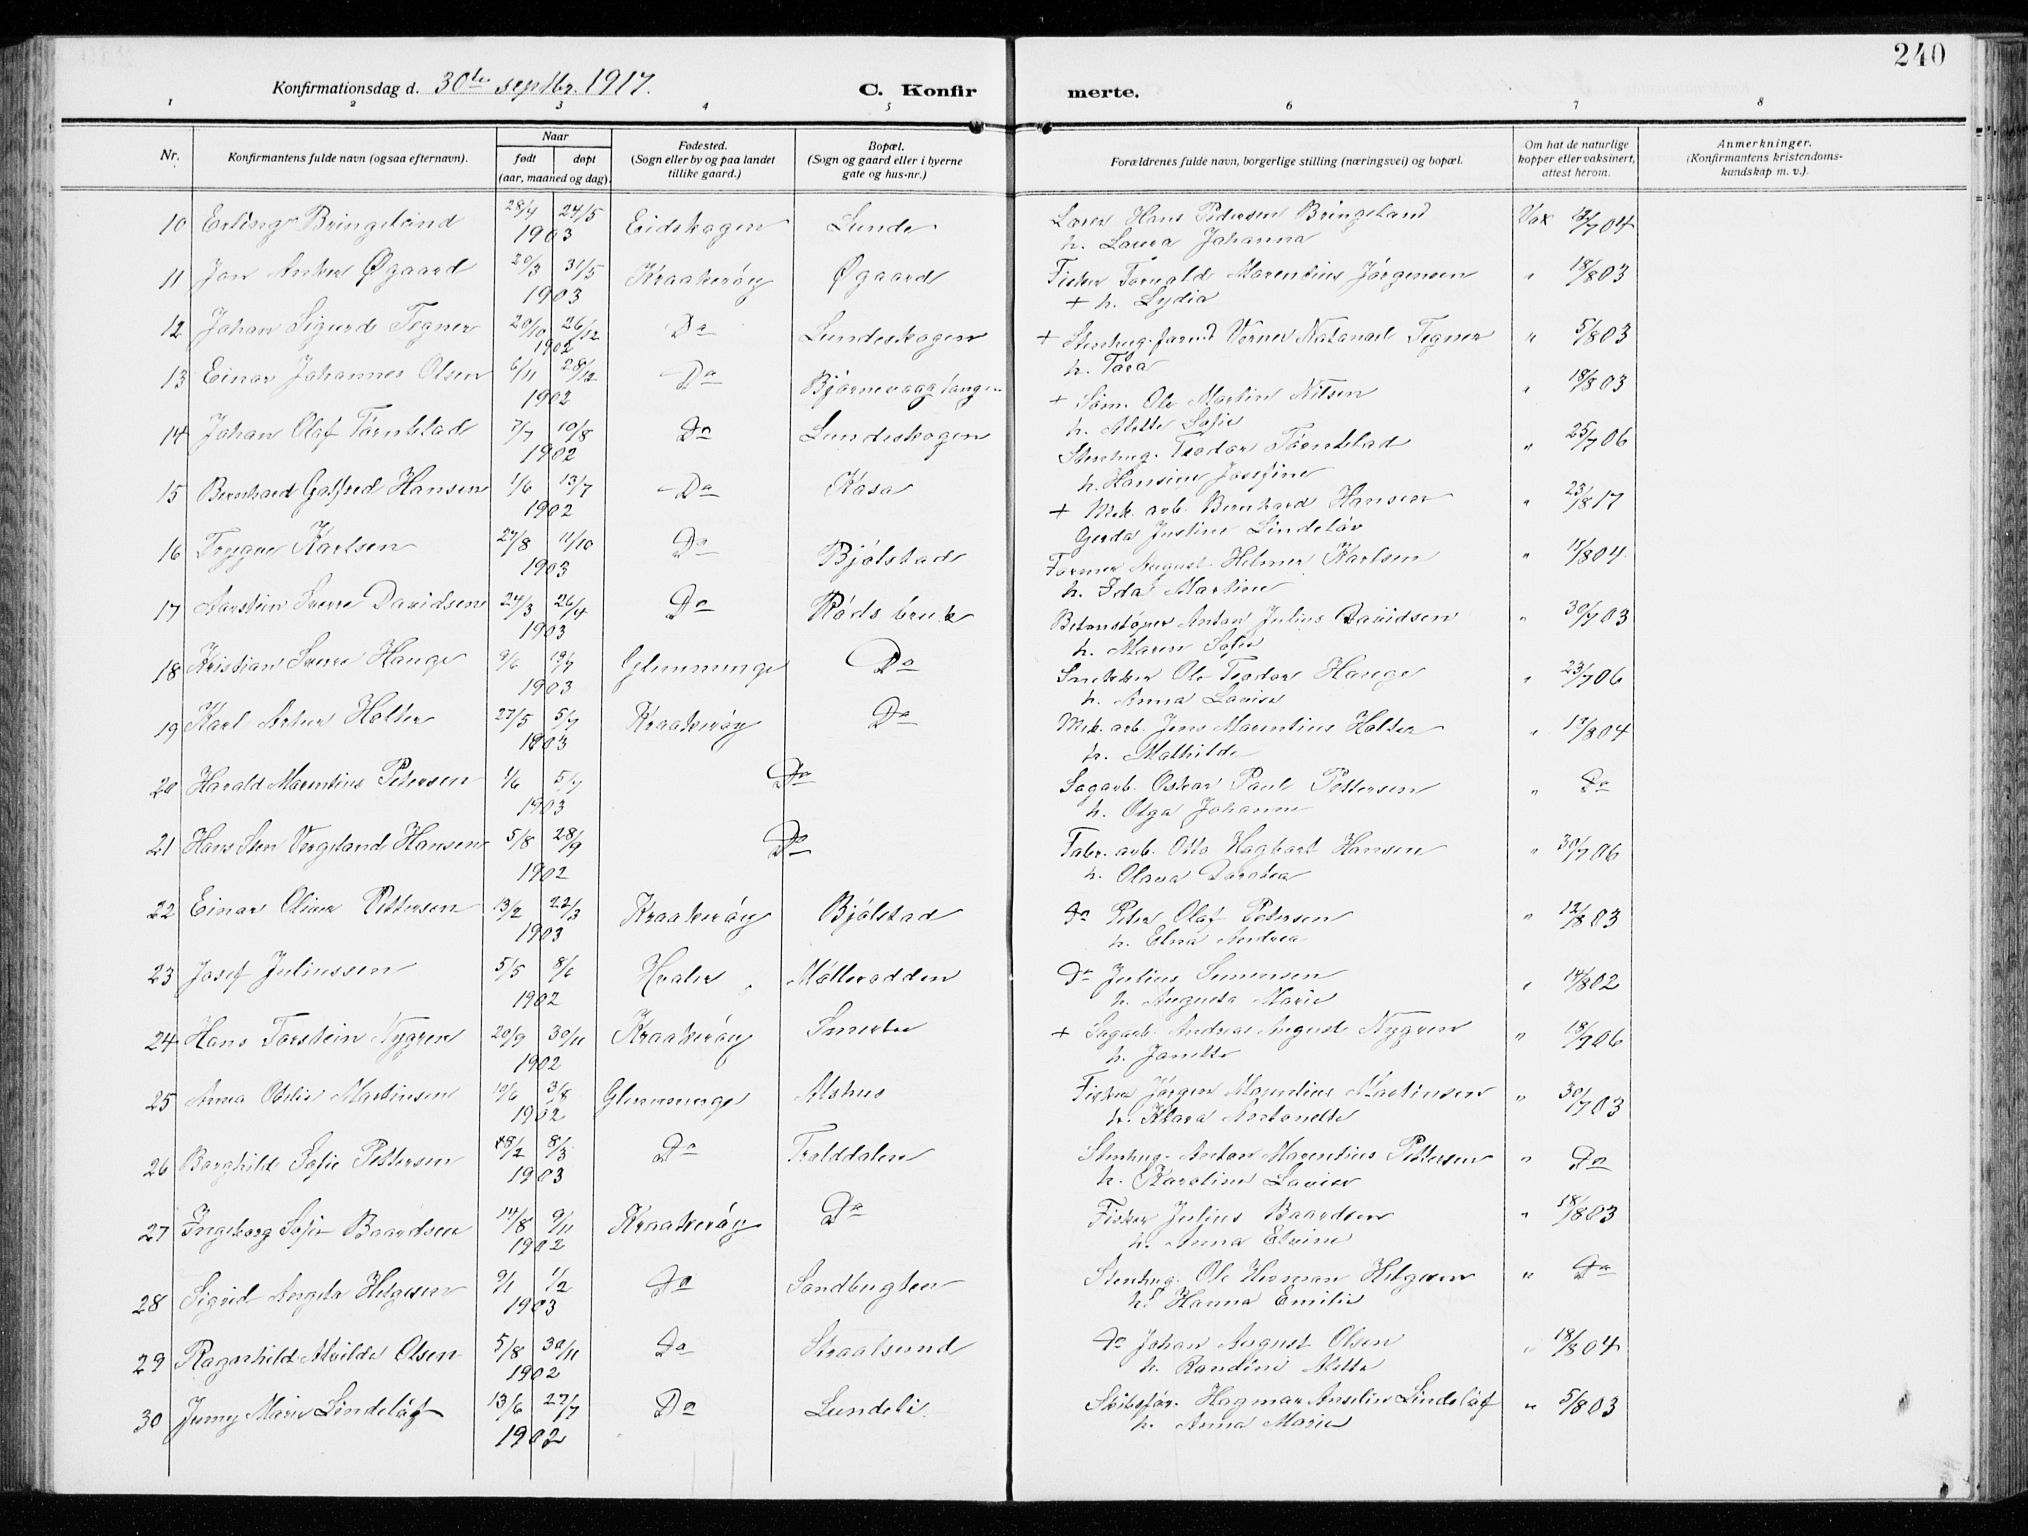 240
Konfirmationsdag d. 30te septbr. 1917.
C. Konfirmerte.
1 2 3 4 5 6 7 8
Nr.
Konfirmantens fulde navn (ogsaa efternavn).
Naar
født døpt
(aar, maaned og dag).
Fødested.
(Sogn eller by og paa landet
tillike gaard.)
Bopæl.
(Sogn og gaard eller i byerne
gate og hus-nr.)
Forældrenes fulde navn, borgerlige stilling (næringsvei) og bopæl.
Om hat de naturlige
kopper eller vaksinert,
attest herom.
Anmerkninger.
(Konfirmantens kristendoms-
kundskap m. v.).
10 Erling Bringeland 28/4 24/5 Eidskogen Lunde Lærer Hans Pedersen Bringeland Vax
1903 h. Laura Johanna
11 Jon Anker Øgaard 20/3 31/5 Kraakerøy Øgaard Fisker Torvald Marentius Jørgensen " 18/8 03
1903 + h. Lydia
12 Johan Sigurd Tegner 20/10 26/12 Do Lundeskogen + Stenhug. Verner Natanael Tegner " 5/8 03
1902 h. Tora
13 Einar Johannes Olsen 6/11 28/12 Do Bjørnevaagtangen + Søm. Ole Martin Nilsen " 18/8 03
1902 h. Alette Sofie
14 Johan Olaf Tørnblad 7/7 10/8 Do Lundeskogen Stenhug. Teodor Tørnblad " 25/7 06
1902 h. Hansine Josefine
15 Bernhard Gotfred Hansen 1/6 13/7 Do Kasa + Mek. arb. Bernhard Hansen " 23/8 17
1902 Gerda Justine Lindeløv
16 Trygve Karlsen 27/8 11/10 Do Bjølstad Former August Helmer Karlsen " 11/8 04
1903 h. Ida Martine
17 Aarstein Sverre Davidsen 24/3 26/4 Do Røds bruk Betonstøper Anton Julius Davidsen " 30/7 03
1903 h. Maren Sofie
18 Kristian Sverre Hauge 9/6 19/7 Glemminge Do Snekker Ole Teodor Hauge " 23/7 06
1903 h. Anna Lovise
19 Karl Artur Holter 27/5 5/7 Kraakerøy Do Mek. arb. Jens Marentius Holter " 17/8 04
1903 h. Mathilde
20 Harald Marentius Petersen 1/6 5/7 Do Sagarb. Oskar Paul Pettersen " Do
1903 h. Olga Johanne
21 Hans Sten Vergeland Hansen 5/8 28/9 Do Fabr. arb. Otto Hagbart Hansen " 30/7 06
1902 h. Olava Dorotea
22 Einar Oliver Pettersen 13/2 22/3 Kraakerøy Bjølstad Do Peter Olaf Petersen " 12/8 03
1903 h. Elna Andrea
23 Josef Juliussen 5/5 8/6 Hvaler Møllerodden Do Julius Simensen " 14/8 02
1902 h. Augusta Marie
24 Hans Torstein Nygren 20/9 30/11 Kraakerøy Smertu + Sagarb. Andreas August Nygren " 18/7 06
1902 h. Janette
25 Anna Otelie Martinsen 19/6 3/8 Glemminge Alshus Fisker Jørgen Marentius Martinsen " 30/7 03
1902 h. Klara Antonette
26 Borghild Sofie Pettersen 28/2 8/3 Do Trolddalen Stenhug. Anton Marentius Pettersen " Do
1903 h. Karoline Lovise
27 Ingeborg Sofie Baardsen 14/8 9/11 Kraakerøy Do Fisker Julius Baardsen " 18/8 03
1902 h. Anna Elvine
28 Sigrid Angela Helgesen 9/1 1/2 Do Sandbugten Stenhug. Ole Herman Helgesen " Do
1903 h. Hanna Emilie
29 Ragnhild Alvilde Olsen 5/8 30/11 Do Straalsund Do Johan August Olsen " 18/8 04
1902 h. Randine Mette
30 Jenny Marie Lindeløf 13/6 27/7 Do Lundeli Skibsfør. Hagmar Anselin Lindeløf " 5/8 03
1902 h. Anna Marie